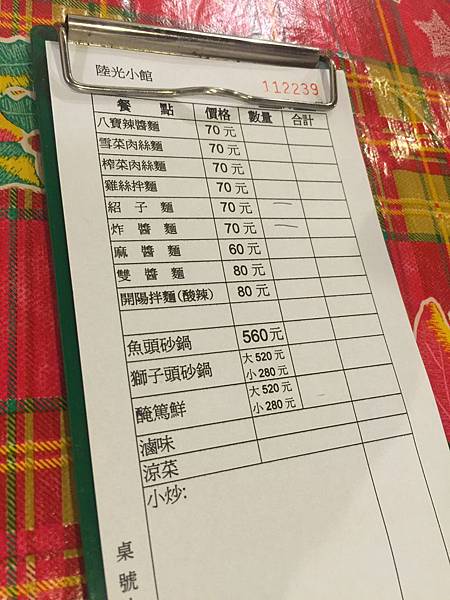 陸光小館
112239
餐 點 價格 數量 合計
八寶辣醬麵 70 元
雪菜肉絲麵 70 元
榨菜肉絲麵 70 元
雞絲拌麵 70 元
紹 子 麵 70 元 一
炸 醬 麵 70 元 一
麻 醬 麵 60 元
雙 醬 麵 80 元
開陽拌麵(酸辣) 80 元
魚頭砂鍋 560元
獅子頭砂鍋 大 520元
小 280元
醃篤鮮 大 520元
小 280元
滷味
涼菜
小炒:
桌號